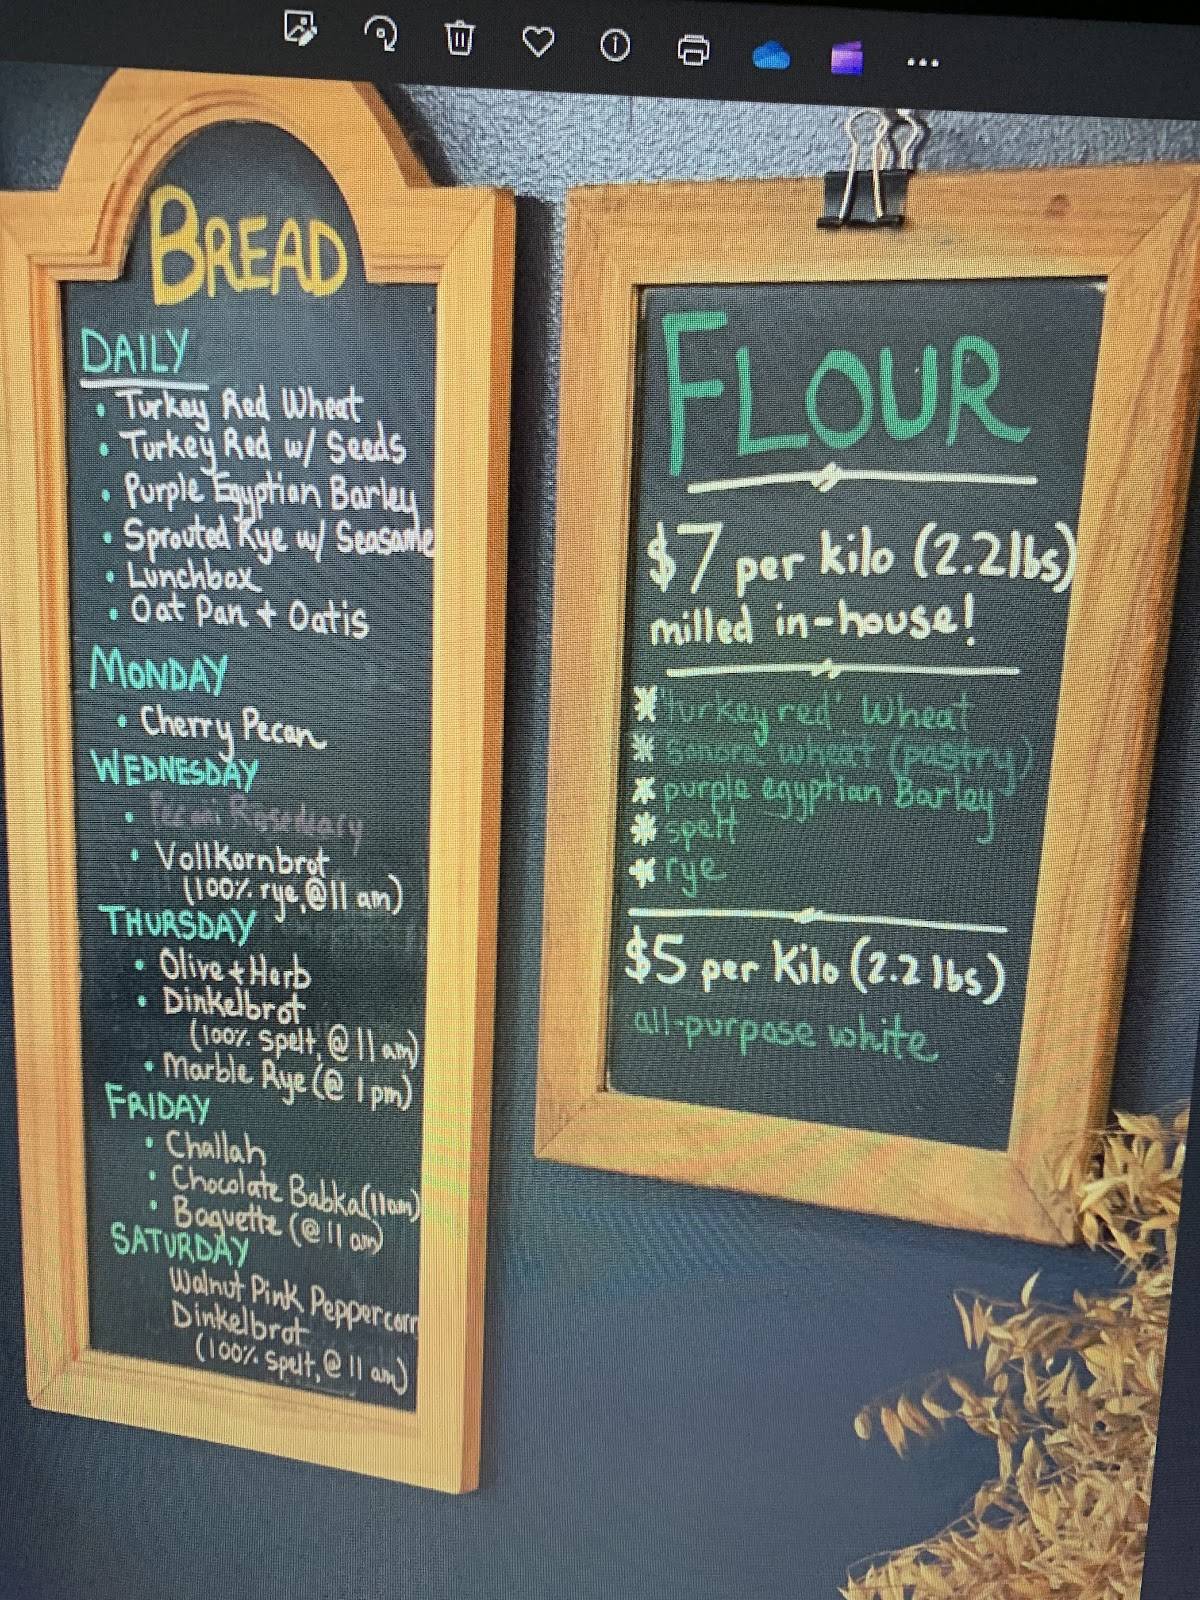 BREAD
DAILY
• Turkey Red Wheat
• Turkey Red w/ Seeds
• Purple Egyptian Barley
• Sprouted Rye w/ Seasame
• Lunchbox
• Oat Pan + Oatis
MONDAY
• Cherry Pecan
WEDNESDAY
•
• Vollkornbrot
(100% rye, @ 11 am)
THURSDAY
• Olive + Herb
• Dinkelbrot
(100% spelt, @ 11 am)
• Marble Rye (@ 1 pm)
FRIDAY
• Challah
• Chocolate Babka (11am)
• Baguette (@ 11 am)
SATURDAY
Walnut Pink Peppercorn
Dinkelbrot
(100% spelt, @ 11 am)
FLOUR
$7 per kilo (2.2 lbs)
milled in-house!
* "turkey red" Wheat
* sonora wheat (pastry)
* purple egyptian Barley
* spelt
* rye
$5 per Kilo (2.2 lbs)
all-purpose white